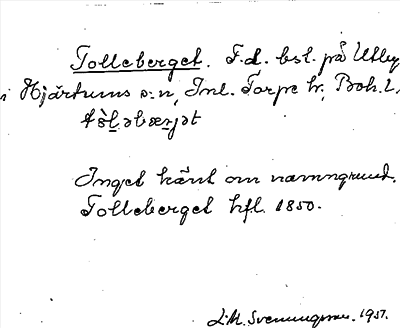 Tolleberget. F.d. bst. på Utby
i Hjärtums s:n, Inl. Torpe hr, Boh. l.
tòl̲əbær̲jət
Inget känt om namngrund.
Tolleberget hfl. 1850.
1951.